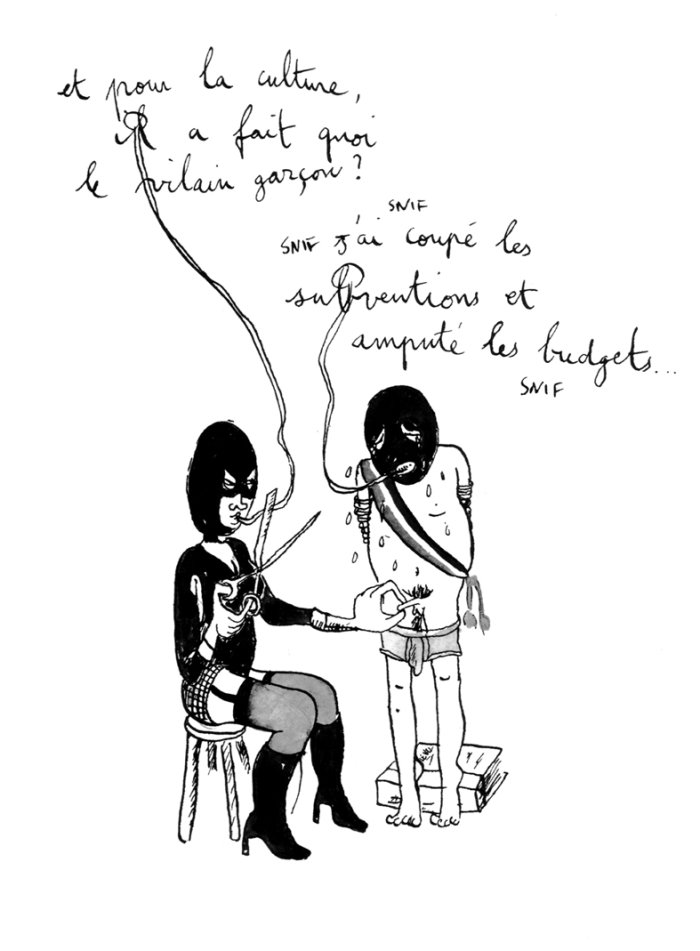 et pour la culture,
il a fait quoi
le vilain garçon?
SNIF
SNIF J'ai coupé les
subventions et
amputé les budgets...
SNIF